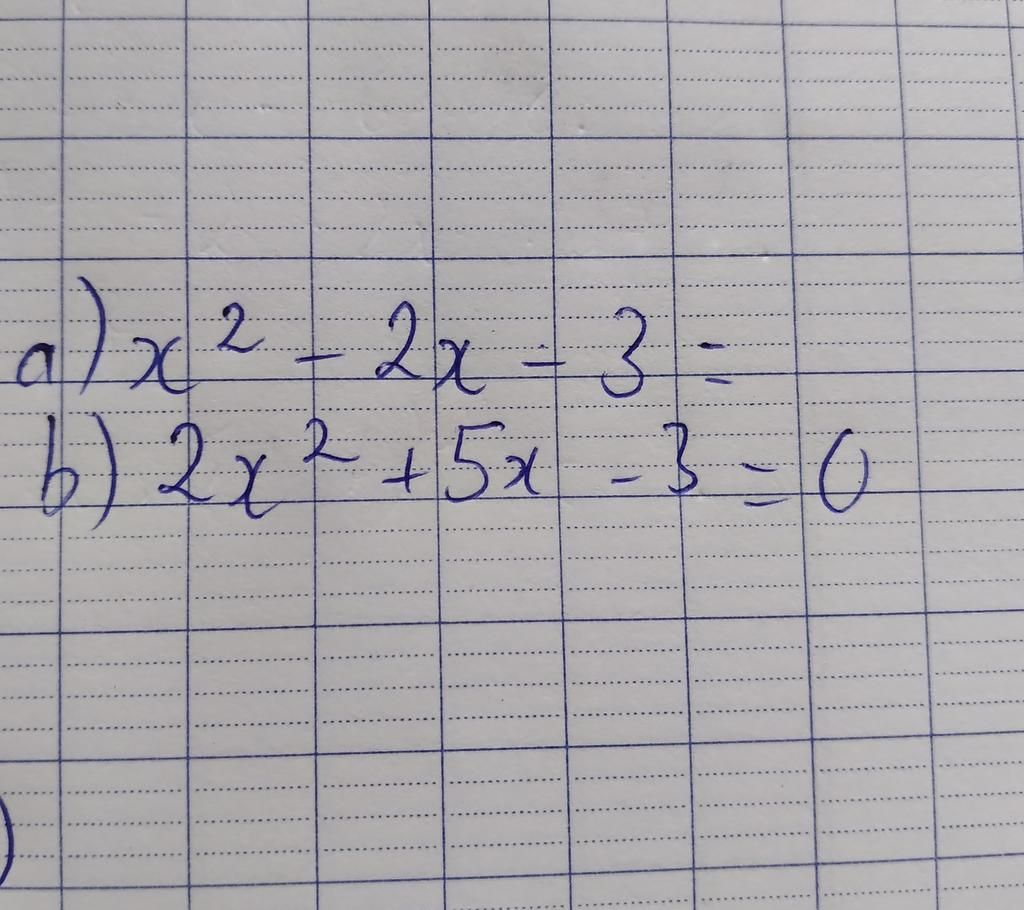 a) x² - 2x - 3 =
b) 2x² + 5x - 3 = 0